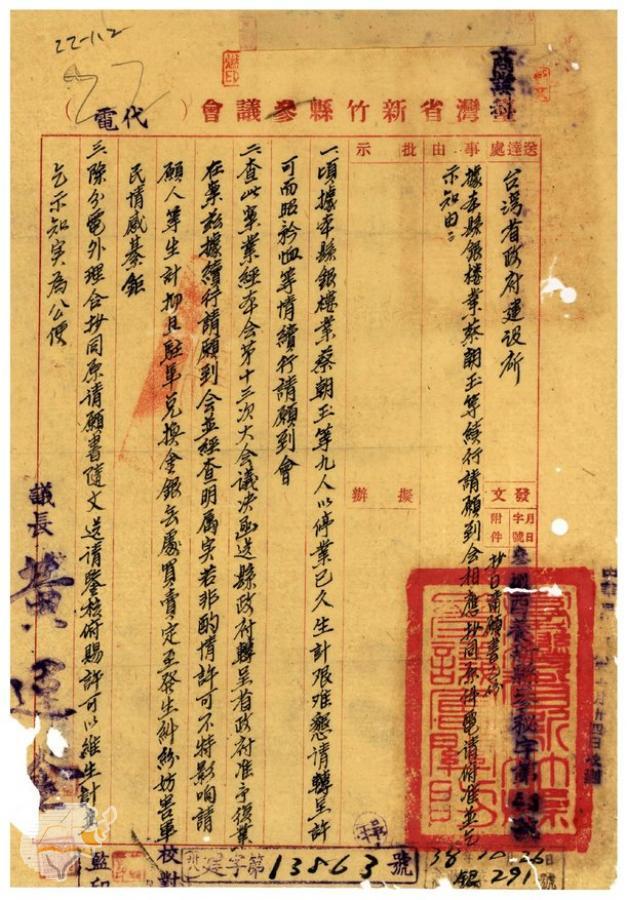 22-112
商業科
臺灣省新竹縣參議會（代電）
送達處
台灣省政府建設所
事由
據本縣銀樓業蔡朝玉等續行請願到會相應抄同原件電請俯准並乞
示知由
批示
擬辦
發文
月日
字號
附件
抄日請願書一份
一、頃據本縣銀樓業蔡朝玉等九人以停業已久生計艰难懇请轉呈許
可而昭矜恤等情續行請願到會
二、查此案業經本会第十三次大会議决函送縣政府轉呈省政府准予復業
在案玆據續行請願到会並經查明属实若非酌情許可不特影响請
願人等生計抑且駐軍兌換金銀無處買賣定至發生糾紛妨害軍
民情感綦鉅
三、除分電外理合抄同原请願書隨文送请鑒核俯賜許可以維生計並
乞示知实為公便
議長 黃運
校對
監印
建字第13863號
38 10 26
銀 291